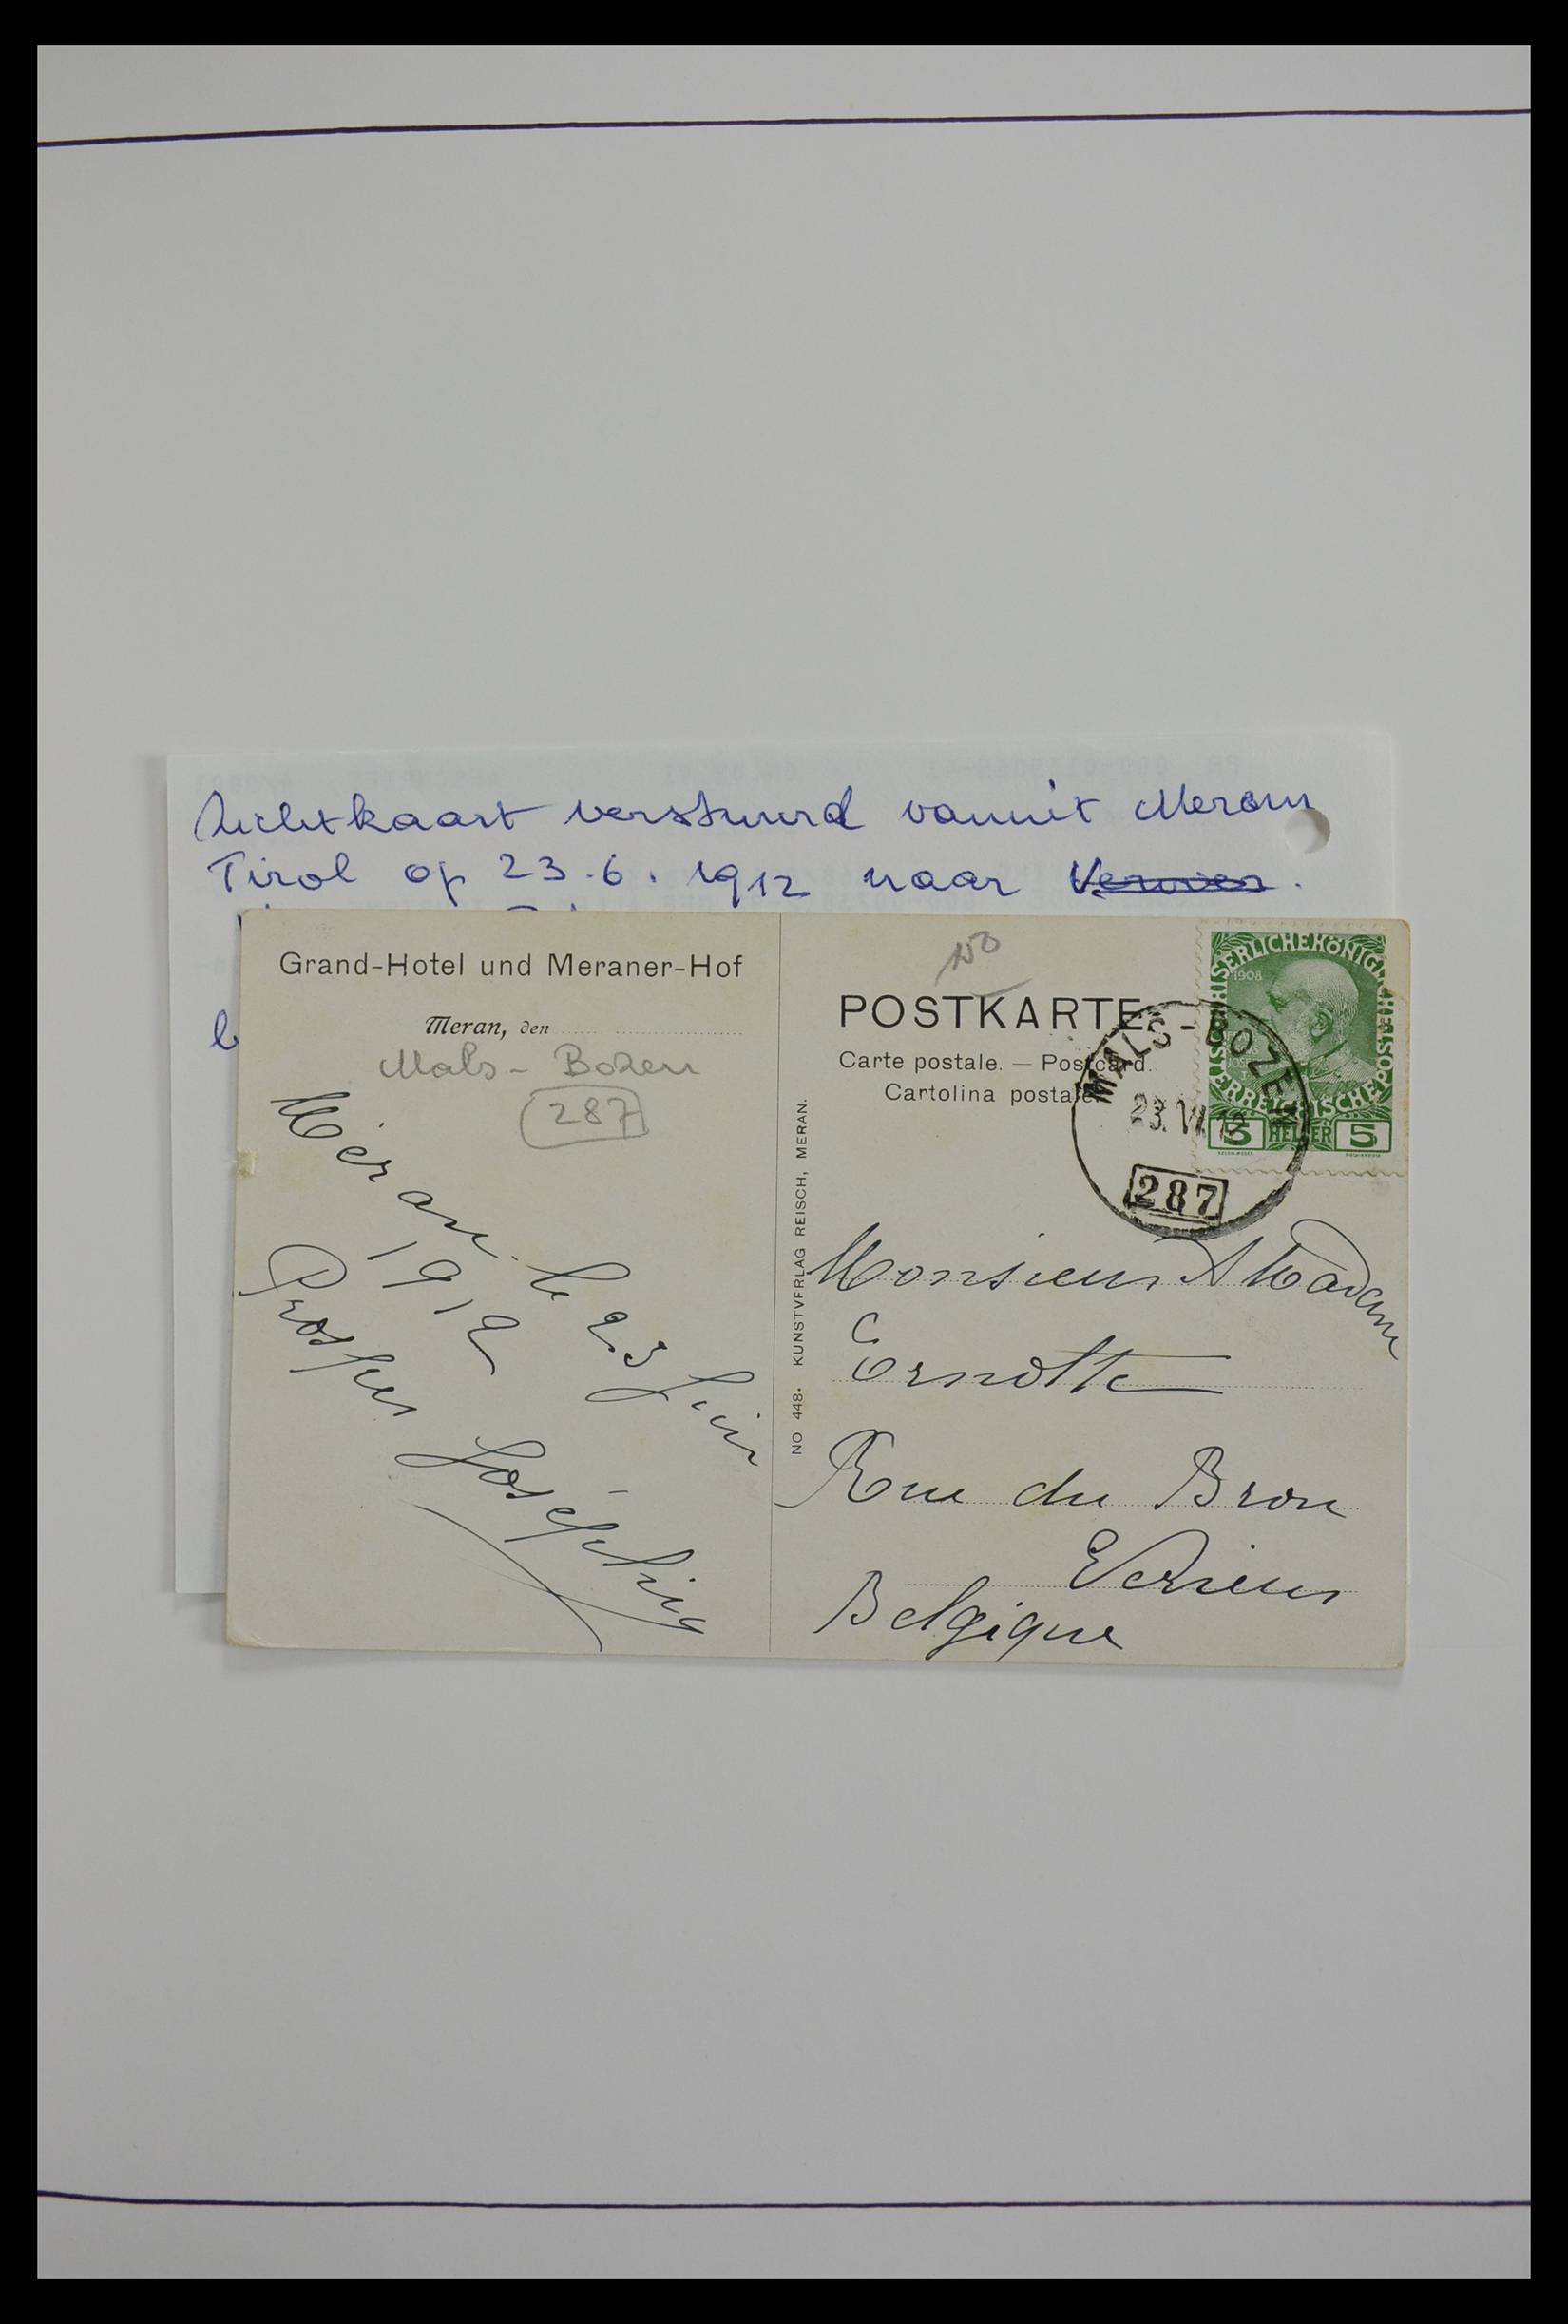 Zichtkaart verstuurd vanuit Meran
Tirol op 23.6.1912 naar
Grand-Hotel und Meraner-Hof
Meran, den
Mals - Bozen
287
Méran le 23 Juin
1912
Prosper Joséphine
NO 448. KUNSTVERLAG REISCH, MERAN.
150
POSTKARTE
Carte postale. — Postcard.
Cartolina postale.
1908
5 HELLER 5
MALS - BOZEN
23.VI.12
287
Monsieur & Madame
Ernotte
Rue du Brou
Belgique